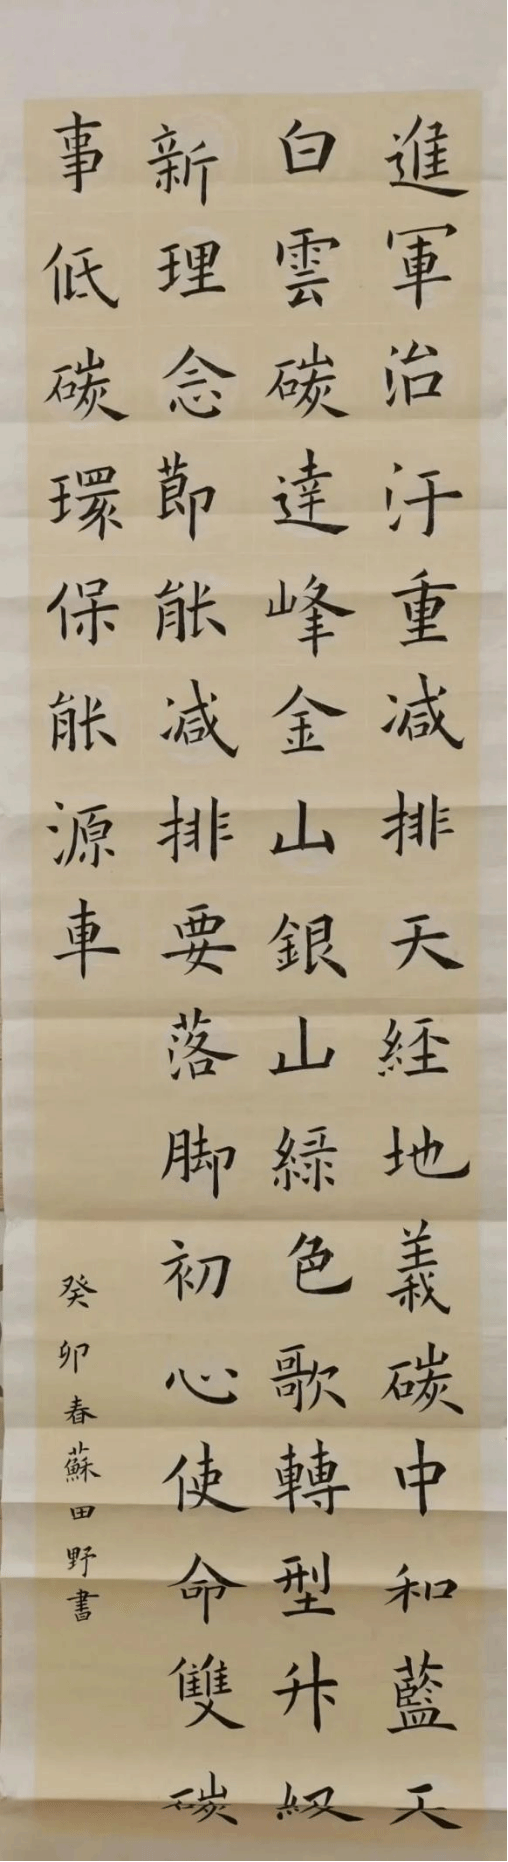 進軍治汙重減排天經地義碳中和藍天
白雲碳達峰金山銀山綠色歌轉型升級
新理念節能減排要落脚初心使命雙碳
事低碳環保能源車
癸卯春蘇田野書